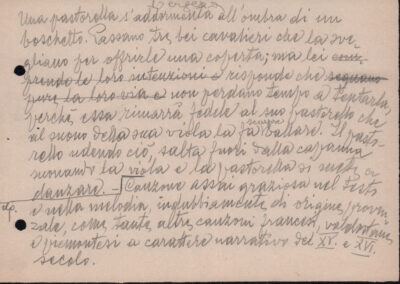 Una pastorella s'addormenta all'ombra di un
boschetto. Passano tre bei cavalieri che la sve-
gliano per offrirle una coperta; ma lei com-
prende le loro intenzioni e risponde che seguano
pure la loro via e non perdano tempo a tentarla,
perché, essa, rimarrà fedele al suo pastorello che
al suono della sua viola la fa sempre ballare. Il past-
rello udendo ciò, salta fuori dalla capanna
suonando la viola e la pastorella si mette a
danzare. Canzone assai graziosa nel testo
e nella melodia, indubbiamente di origine proven-
zale, come tante altre canzoni francesi, valdostane
e piemontesi a carattere narrativo del XV. e XVI.
secolo.